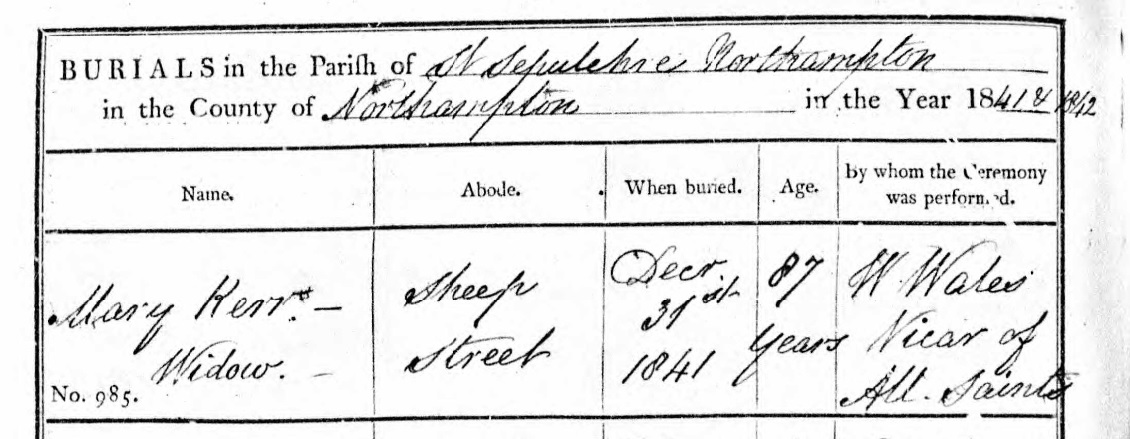 BURIALS in the Parish of St Sepulchre Northampton
in the County of Northampton in the Year 1841 & 1842
Name.
Abode.
When buried.
Age.
by whom the Ceremony
was performed.
Mary Kerr. –
Widow. –
No. 985.
Sheep
Street
Decr.
31st
1841
87
Years
W Wales
Vicar of
All. Saints